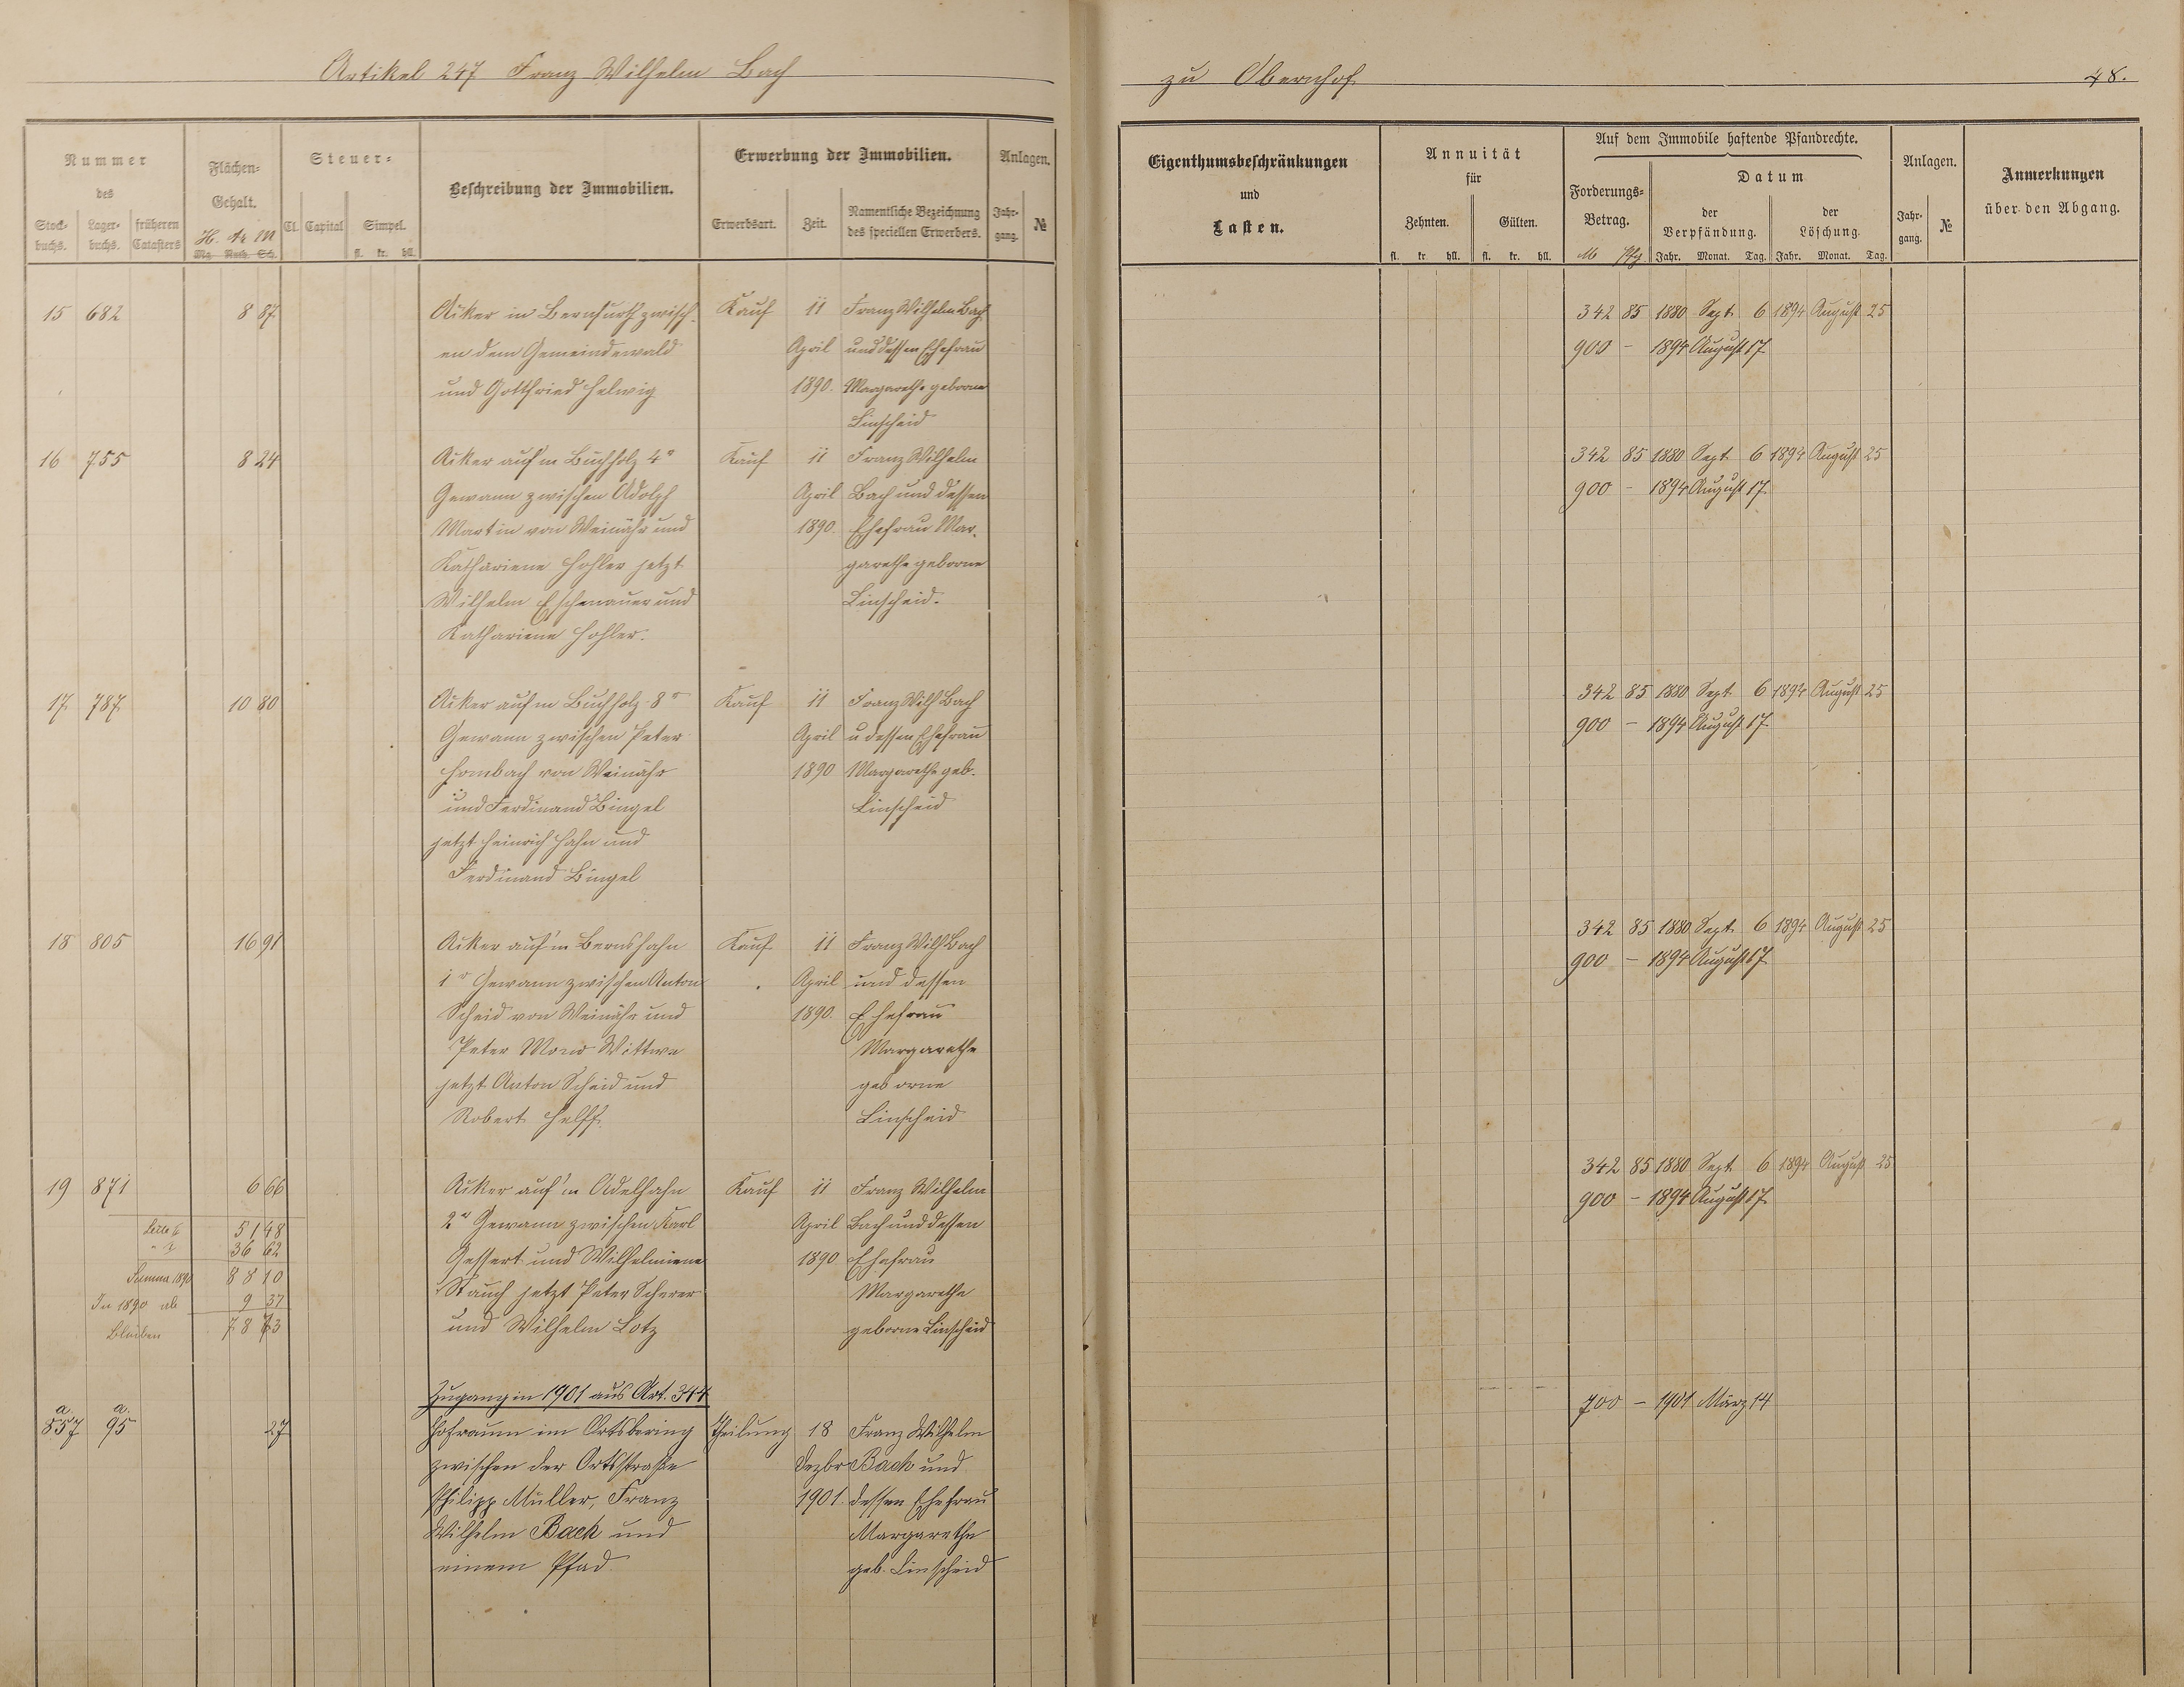 Artikel 247 Franz Wilhelm Bach
Nummer
des
Stock-
buchs.
Lager-
buchs.
früheren
Catasters
Flächen-
Gehalt.
H. Ar M
Mg. Ruth. Sch.
Steuer-
Cl. Capital Simpel.
fl. kr. hll.
Beschreibung der Immobilien.
Erwerbung der Immobilien.
Erwerbsart. Zeit.
Namentliche Bezeichnung
des speciellen Erwerbers.
Anlagen.
Jahr-
gang.
№
15 682 8 87 Acker in Bernfurth zwisch- Kauf 11 Franz Wilhelm Bach
en dem Gemeindewald April und dessen Ehefrau
und Gottfried Helwig 1890. Margarethe geborne
Linscheid
16 755 8 24 Acker auf'm Buchholz 4r Kauf 11 Franz Wilhelm
Gewann zwischen Adolph April Bach und dessen
Martin von Weinähr und 1890. Ehefrau Mar-
Kathariene Hohler jetzt garethe geborne
Wilhelm Eschenauer und Linscheid.
Kathariene Hohler.
17 787 10 80 Acker auf'm Buchholz 8r Kauf 11 Franz Wilh Bach
Gewann zwischen Peter April u dessen Ehefrau
Hombach von Weinähr 1890 Margarethe geb.
und Ferdinand Bingel Linscheid
jetzt Heinrich Hahn und
Ferdinand Bingel
18 805 16 91 Acker auf'm Bernshahn Kauf 11 Franz Wilh Bach
1r Gewann zwischen Anton April und dessen
Scheid von Weinähr und 1890. Ehefrau
Peter Wittwe Margarethe
jetzt Anton Scheid und geborne
Robert Helff. Linscheid
19 871 6 66 Acker auf'm Adelhahn Kauf 11 Franz Wilhelm
2r Gewann zwischen Karl April Bach und dessen
Gessert und Wilhelmiene 1890 Ehefrau
Stauch jetzt Peter Scherer Margarethe
und Wilhelm Lotz geborne Linscheid
Seite 51 48
36 62
Summa 1890 88 10
In 1890 ab 9 37
Bleiben 78 73
Zugang in 1901 aus Art. 344
a. a.
857 95 27 Hofraum im Ortsbering Theilung 18 Franz Wilhelm
zwischen der Ortsstraße Dezbr Bach und
Philipp Müller, Franz 1901. dessen Ehefrau
Wilhelm Bach und Margarethe
einem Pfad geb. Linscheid
zu Obernhof 48.
Eigenthumsbeschränkungen
und
Lasten.
Annuität
für
Zehnten. Gülten.
fl. kr hll. fl. kr. hll.
Auf dem Immobile haftende Pfandrechte.
Forderungs-
Betrag.
M Pfg
Datum
der
Verpfändung.
Jahr. Monat. Tag.
der
Löschung.
Jahr. Monat. Tag.
Anlagen.
Jahr-
gang.
№
Anmerkungen
über den Abgang.
342 85 1880 Sept 6 1894 August 25
900 - 1894 August 17
342 85 1880 Sept 6 1894 August 25
900 - 1894 August 17
342 85 1880 Sept 6 1894 August 25
900 - 1894 August 17
342 85 1880 Sept 6 1894 August 25
900 - 1894 August 17
342 85 1880 Sept 6 1894 August 25
900 - 1894 August 17
700 - 1901 März 14